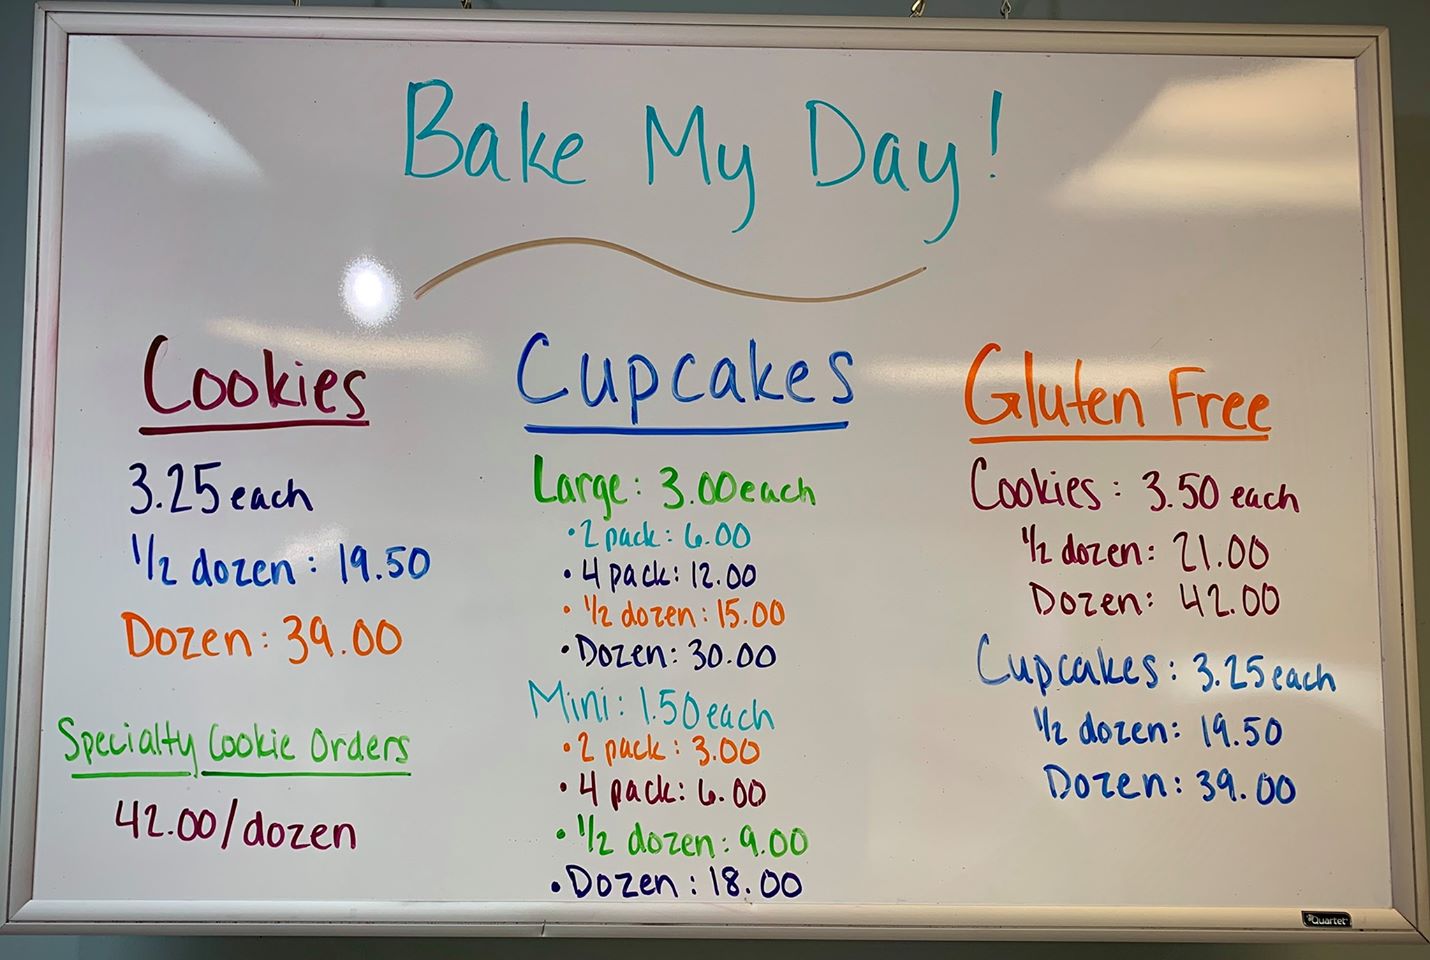 Bake My Day!
Cookies
3.25 each
1/2 dozen: 19.50
Dozen: 39.00
Specialty Cookie Orders
42.00/dozen
Cupcakes
Large: 3.00 each
• 2 pack: 6.00
• 4 pack: 12.00
• 1/2 dozen: 15.00
• Dozen: 30.00
Mini: 1.50 each
• 2 pack: 3.00
• 4 pack: 6.00
• 1/2 dozen: 9.00
• Dozen: 18.00
Gluten Free
Cookies: 3.50 each
1/2 dozen: 21.00
Dozen: 42.00
Cupcakes: 3.25 each
1/2 dozen: 19.50
Dozen: 39.00
Quartet